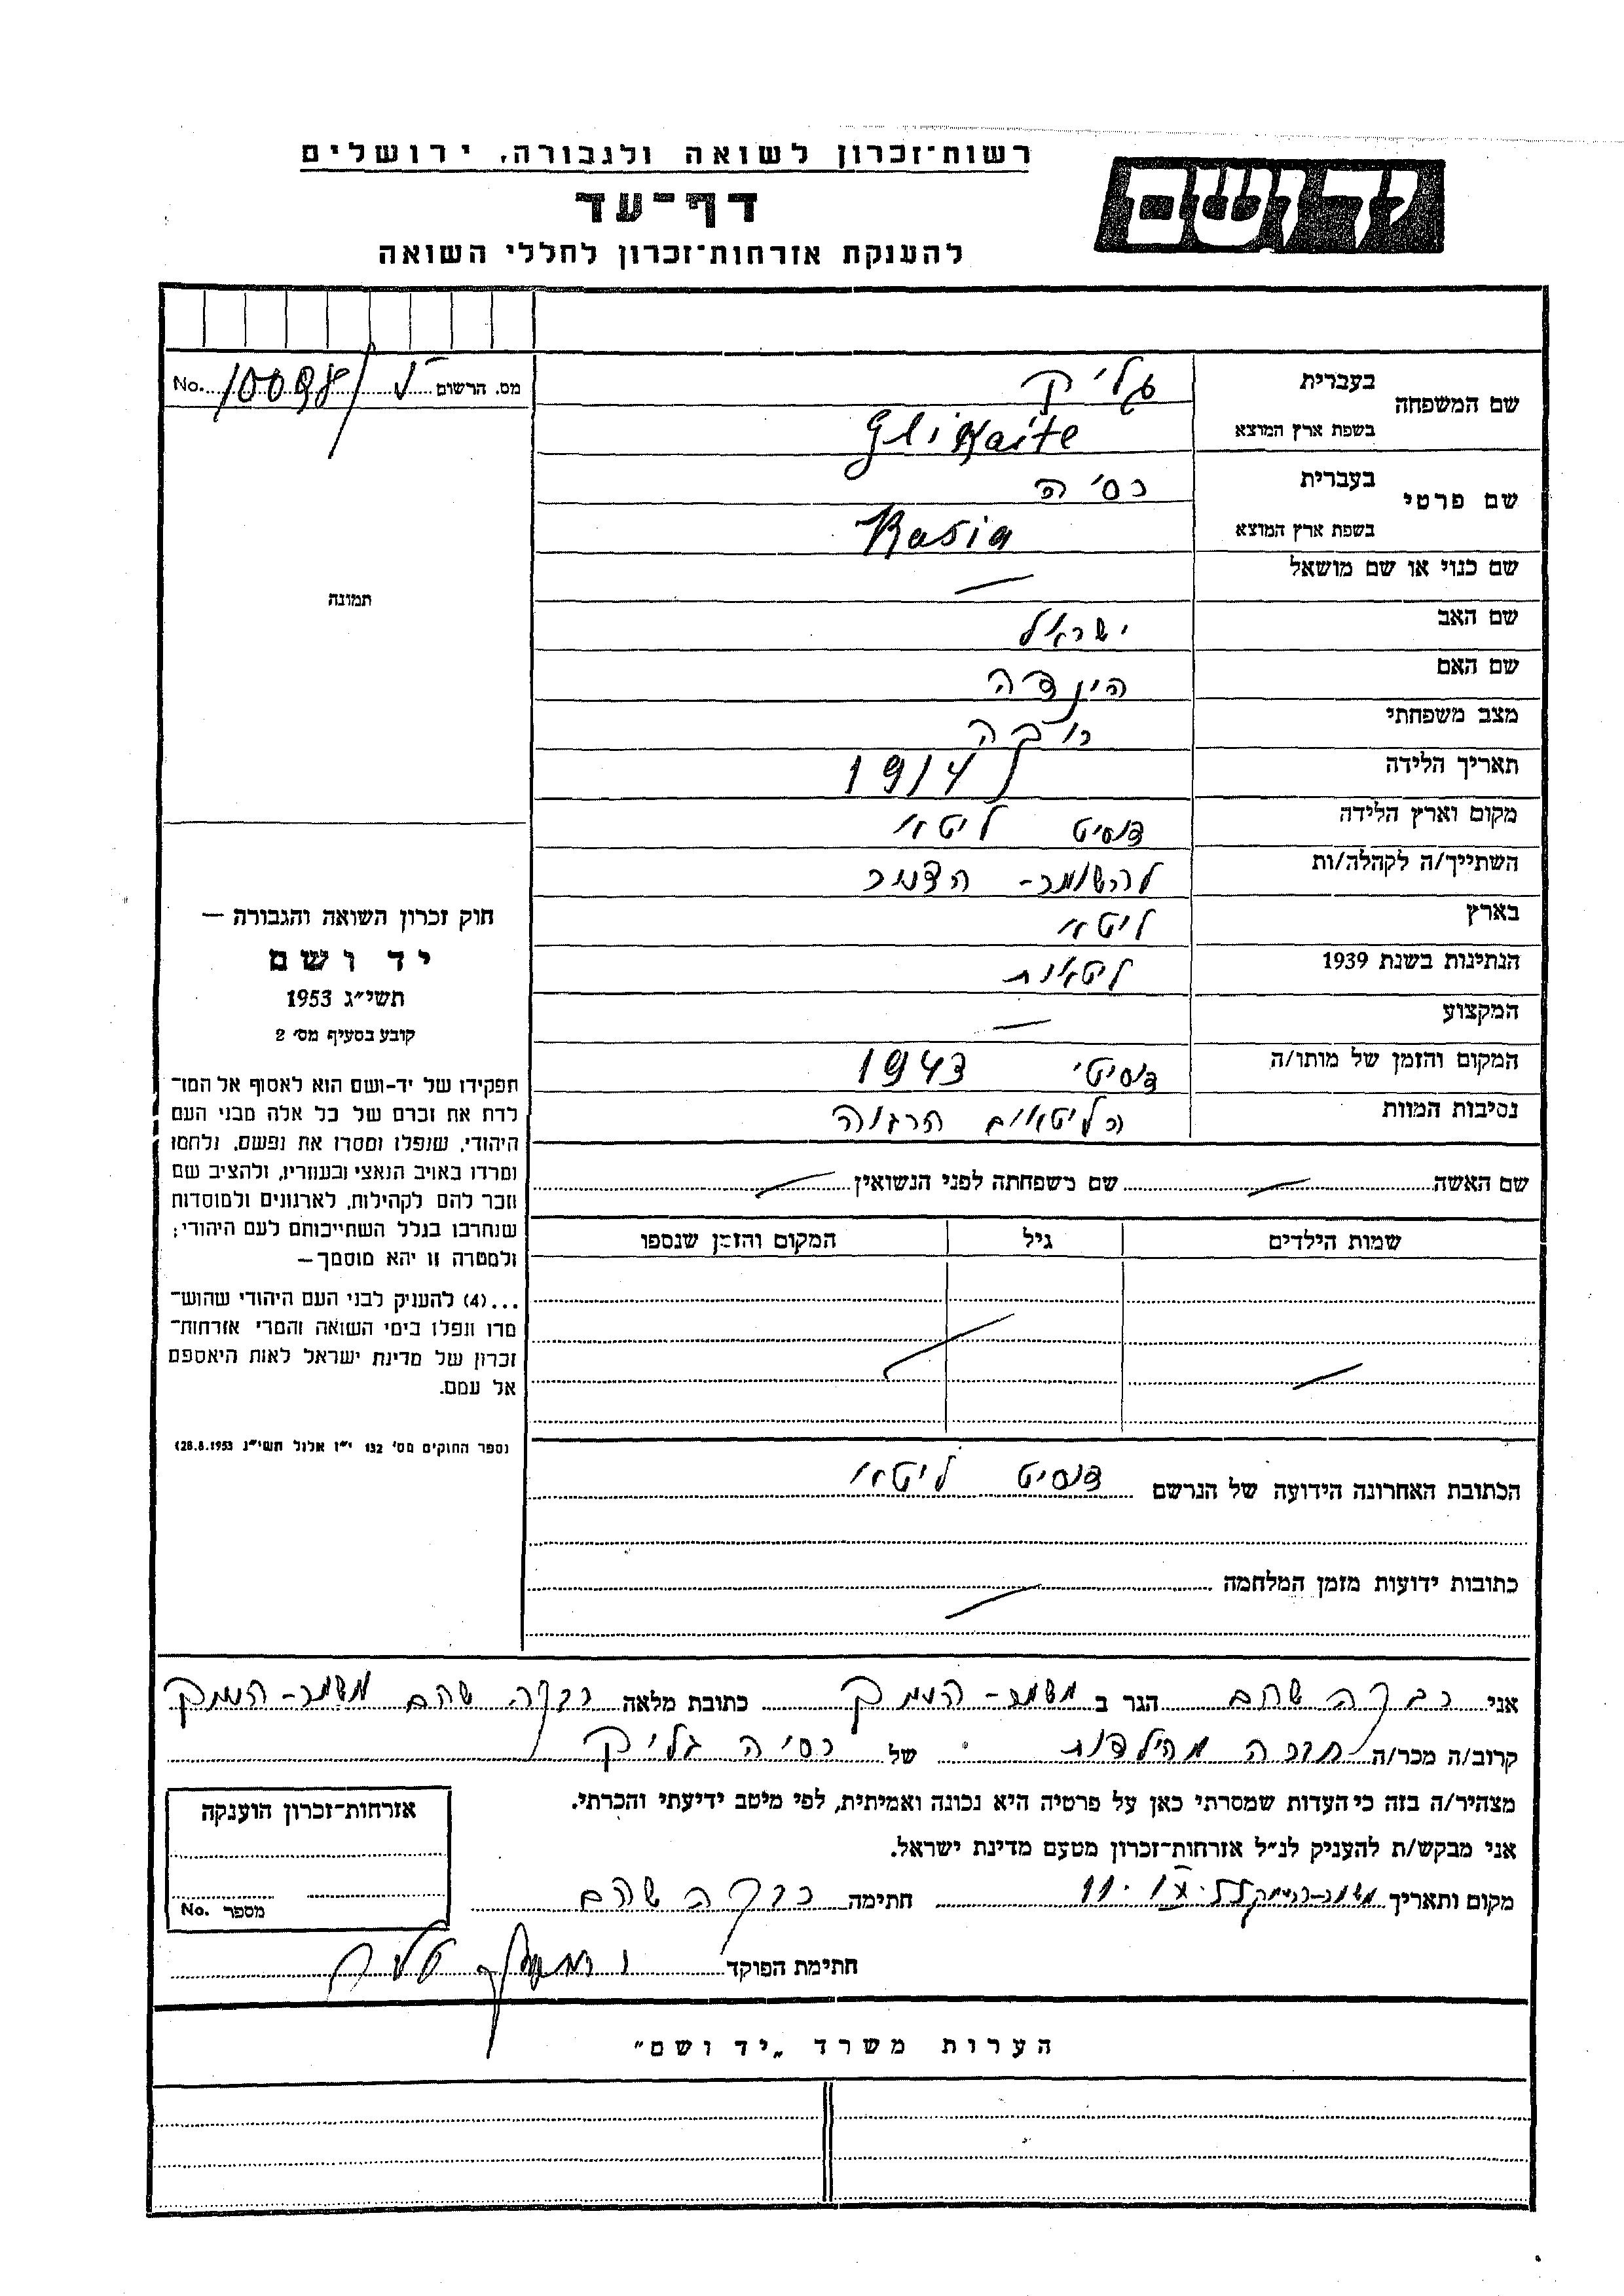 רשות־זכרון לשואה ולגבורה, ירושלים
יד ושם
דף־עד
להענקת אזרחות־זכרון לחללי השואה
מס. הרשום 10098 No.
שם המשפחה בעברית גליק
בשפת ארץ המוצא Glikaite
שם פרטי בעברית רסיה
בשפת ארץ המוצא Rasia
שם כנוי או שם מושאל —
שם האב ישראל
שם האם הינדה
מצב משפחתי רווקה
תאריך הלידה 1914
מקום וארץ הלידה ליטא
השתייך/ה לקהלה/ות להשומר-הצעיר
בארץ ליטא
הנתינות בשנת 1939 ליטאית
המקצוע —
המקום והזמן של מותו/ה 1943
נסיבות המוות הליטאים הרגוה
שם האשה שם משפחתה לפני הנשואין
שמות הילדים גיל המקום והזמן שנספו
הכתובת האחרונה הידועה של הנרשם ליטא
כתובות ידועות מזמן המלחמה
תמונה
חוק זכרון השואה והגבורה —
יד ושם
תשי״ג 1953
קובע בסעיף מס׳ 2
תפקידו של יד-ושם הוא לאסוף אל המו־
לדת את זכרם של כל אלה מבני העם
היהודי, שנפלו ומסרו את נפשם, נלחמו
ומרדו באויב הנאצי ובעוזריו, ולהציב שם
וזכר להם לקהילות, לארגונים ולמוסדות
שנחרבו בגלל השתייכותם לעם היהודי;
ולמטרה זו יהא מוסמך—
...(4) להענין לבני העם היהודי שהוש־
מדו ונפלו בימי השואה והמרי אזרחות־
זכרון של מדינת ישראל לאות היאספם
אל עמם.
(ספר החוקים מס׳ 132 י״ז אלול תשי״ג 28.8.1953)
אני רבקה שהם הגר ב משמר-העמק כתובת מלאה רבקה שהם משמר-העמק
קרוב/ה מכר/ה חברה מהילדות של רסיה גליק
מצהיר/ה בזה כי העדות שמסרתי כאן על פרטיה היא נכונה ואמיתית, לפי מיטב ידיעתי והכרתי.
אני מבקש/ת להעניק לנ״ל אזרחות־זכרון מטעם מדינת ישראל.
מקום ותאריך משמר-העמק חתימה רבקה שהם
חתימת הפוקד
אזרחות־זכרון הוענקה
מספר No.
הערות משרד „יד ושם״